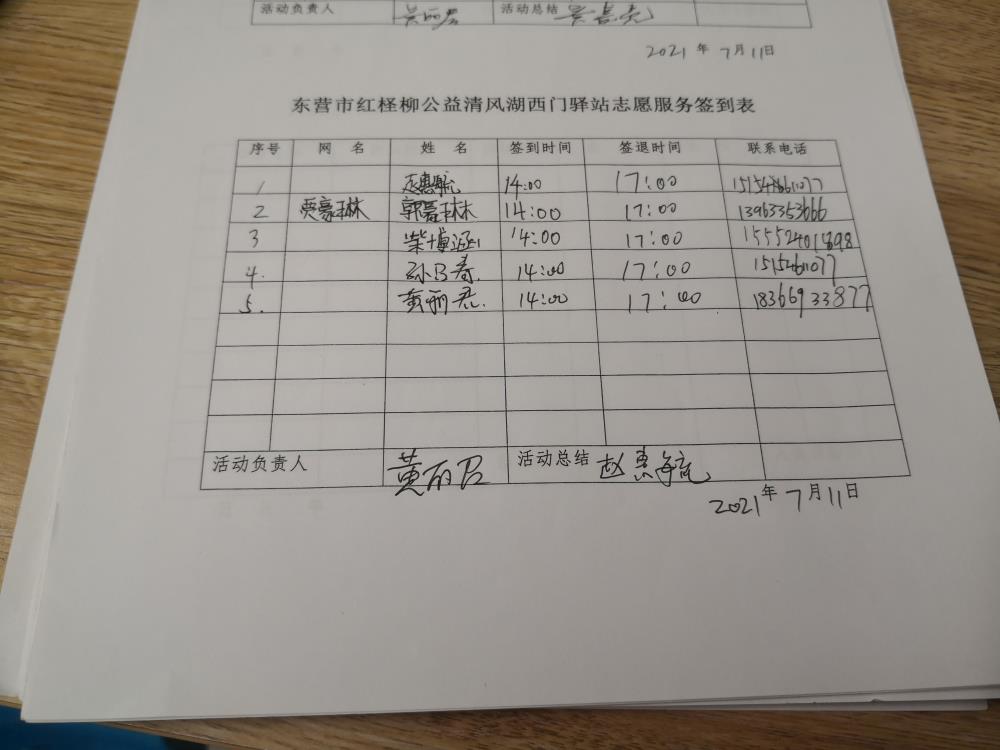 活动负责人 黄丽君 活动总结
2021 年 7月11日
东营市红柽柳公益清风湖西门驿站志愿服务签到表
序号 网 名 姓 名 签到时间 签退时间 联系电话
1 赵惠毓 14:00 17:00
2 贾豪琳 郭豪琳 14:00 17:00 13963353666
3 柴博涵 14:00 17:00
4. 孙乃春. 14:00 17:00 15154611077
5. 黄丽君. 14:00 17:00 18366933877
活动负责人 黄丽君 活动总结 赵惠毓
2021年7月11日